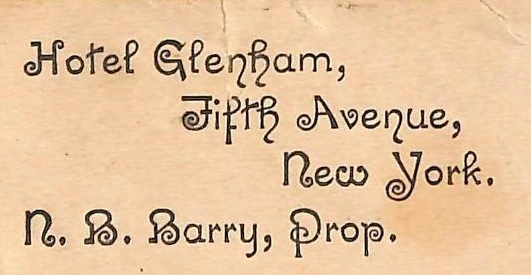 Hotel Glenham,
Fifth Avenue,
New York.
N. B. Barry, Prop.